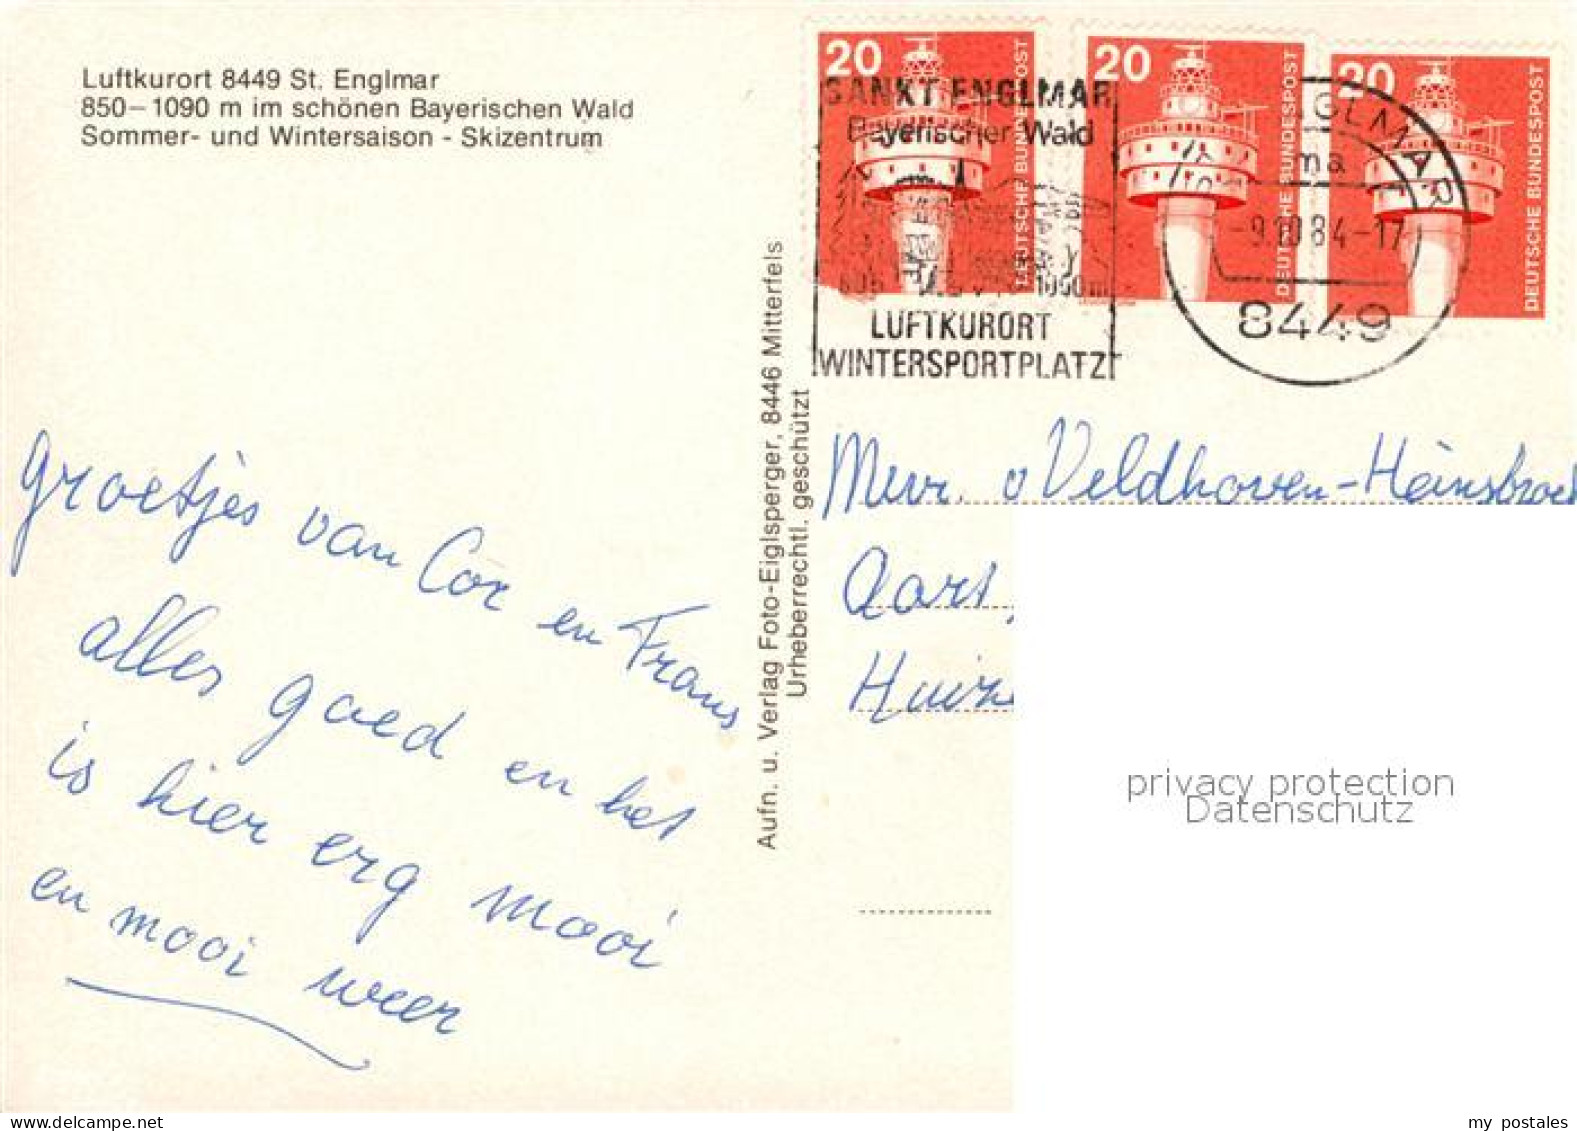 Luftkurort 8449 St. Englmar
850–1090 m im schönen Bayerischen Wald
Sommer- und Wintersaison - Skizentrum
20
DEUTSCHE BUNDESPOST
20
DEUTSCHE BUNDESPOST
20
DEUTSCHE BUNDESPOST
SANKT ENGLMAR
Bayerischer Wald
LUFTKURORT
WINTERSPORTPLATZ
ma
-9.10.84-17
8449
Aufn. u. Verlag Foto-Eiglsperger, 8446 Mitterfels
Urheberrechtl. geschützt
groetjes van Cor en Frans
alles goed en het
is hier erg mooi
en mooi weer
Mevr. v Veldhoven-Heinsbroek
Aart
privacy protection
Datenschutz
delcampe.net
my postales